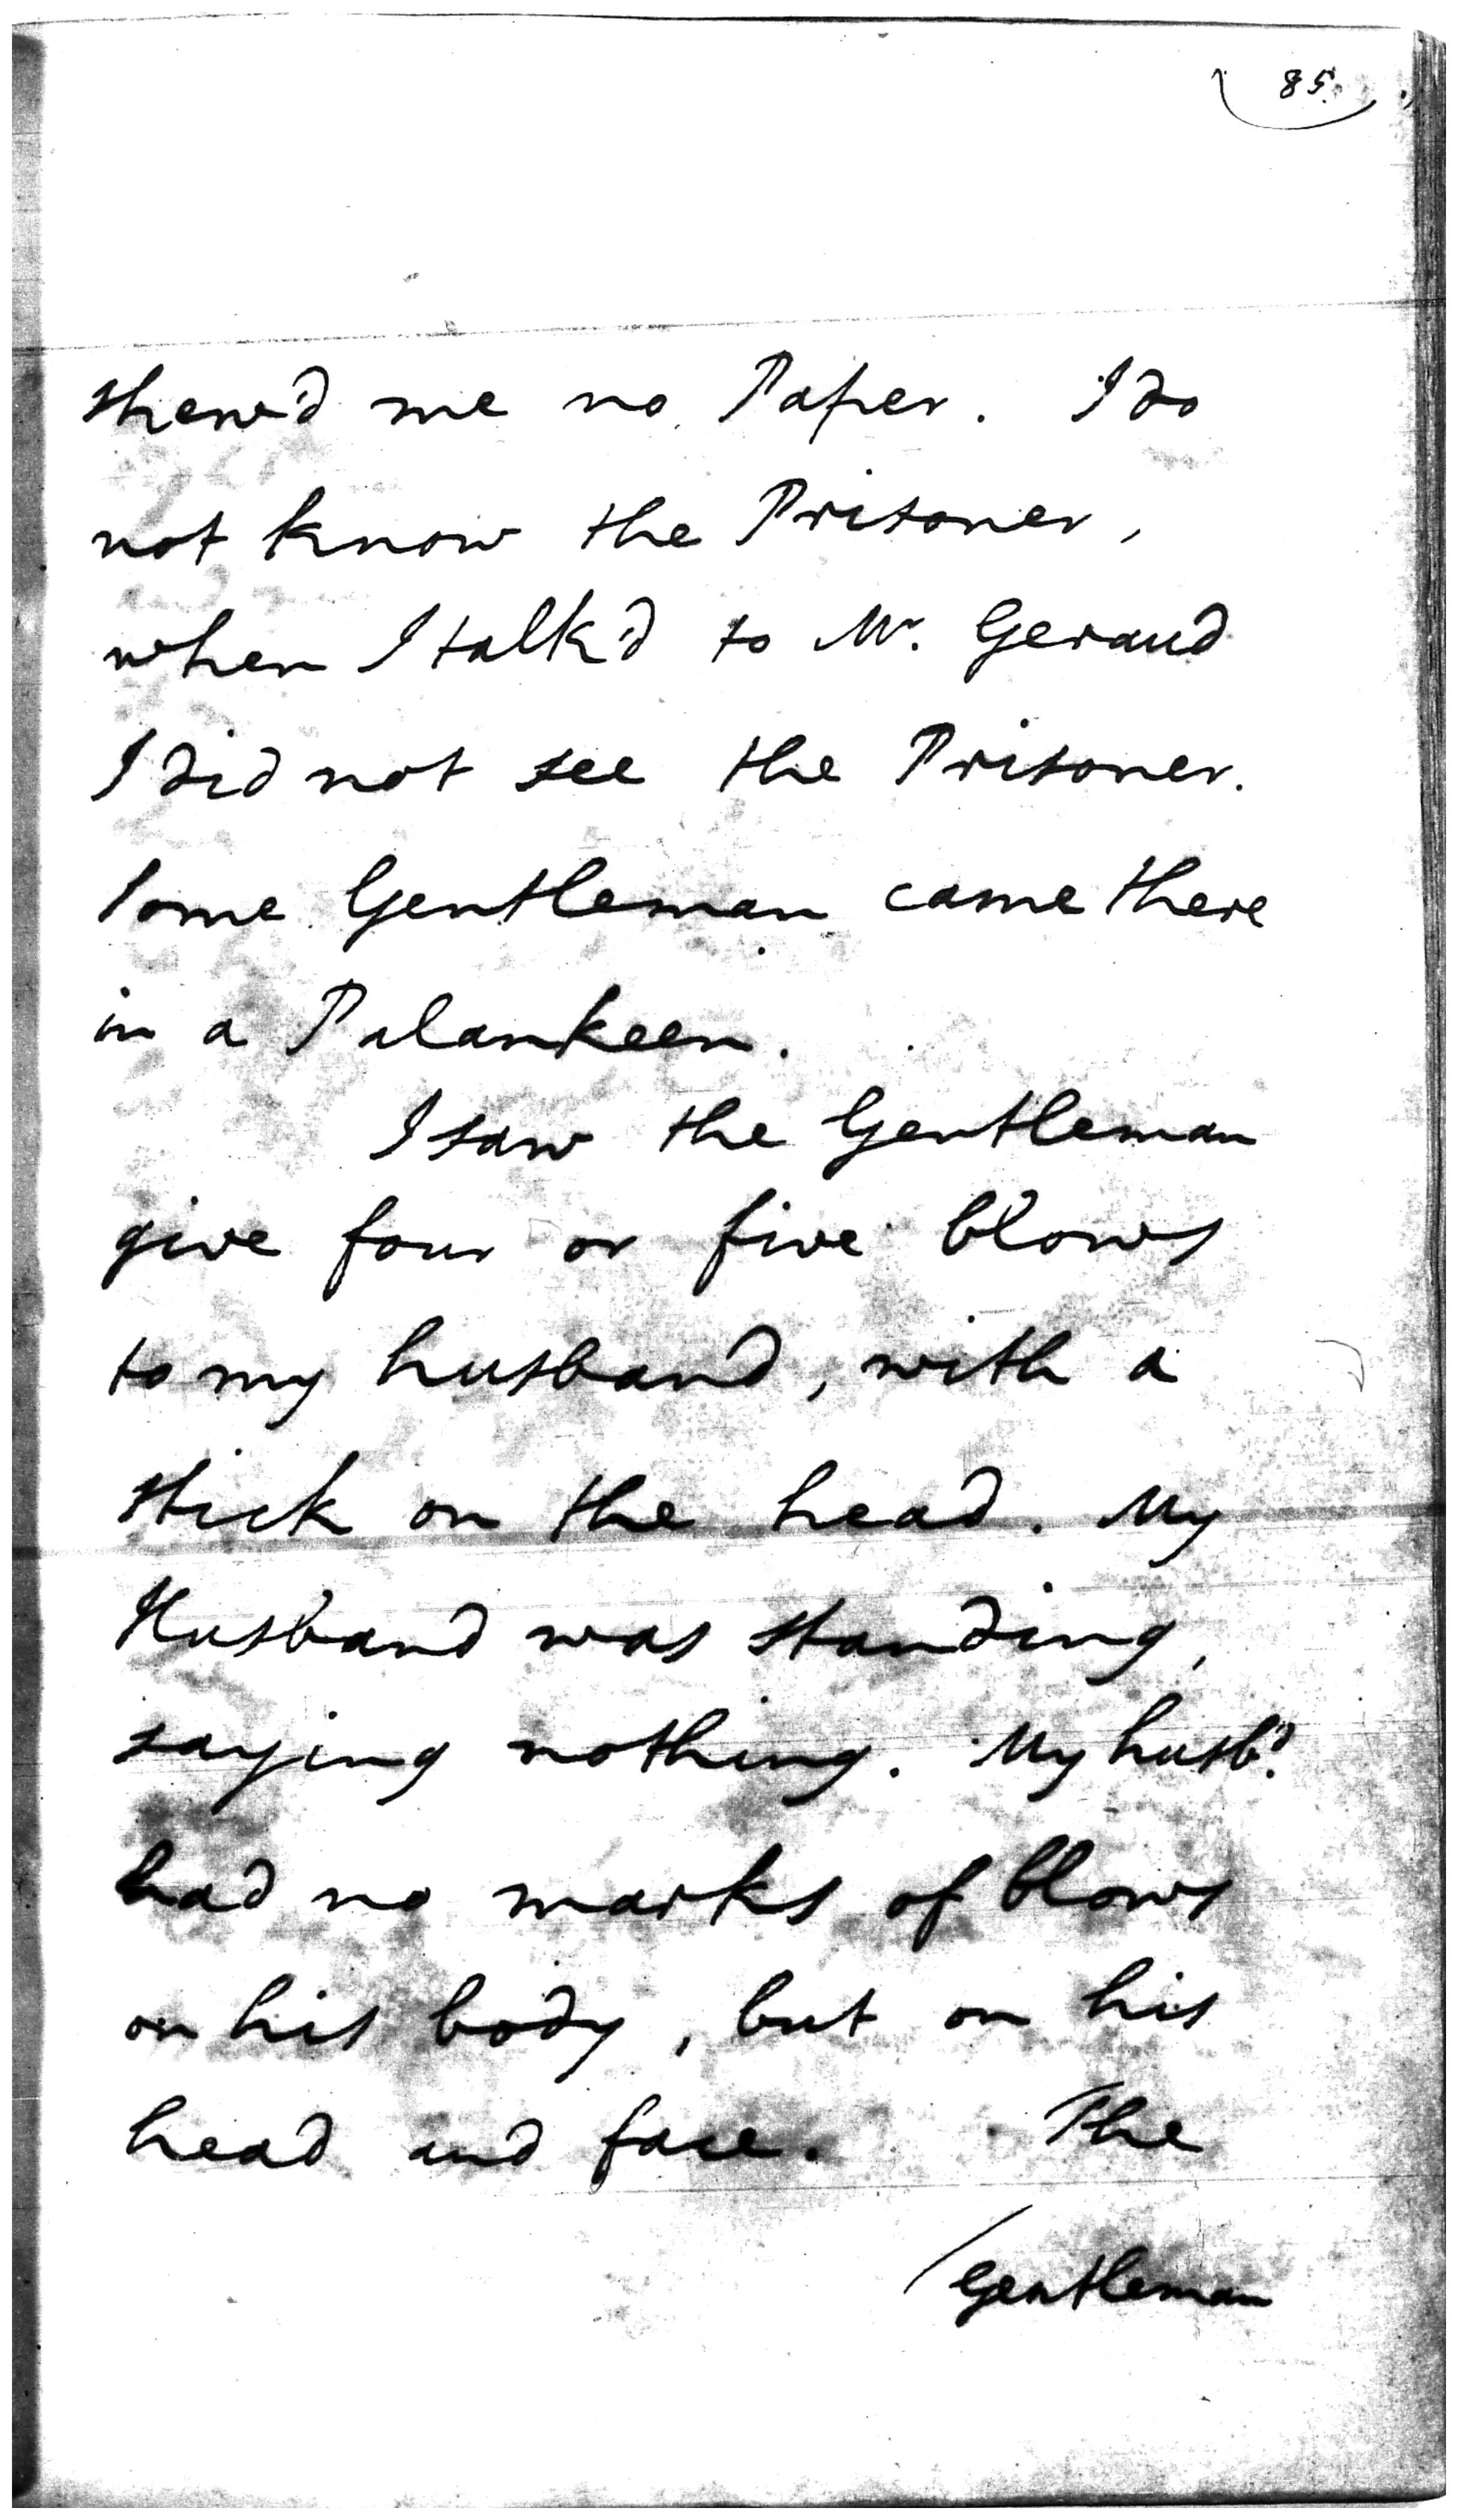 85.
shew'd me no Paper. I do
not know the Prisoner,
when I talk'd to Mr. Geraud
I did not see the Prisoner.
Some Gentleman came there
in a Palankeen.
I saw the Gentleman
give four or five blows
to my husband, with a
stick on the head. My
Husband was standing,
saying nothing. My husbd.
had no marks of blows
on his body, but on his
head and face. The
/Gentleman